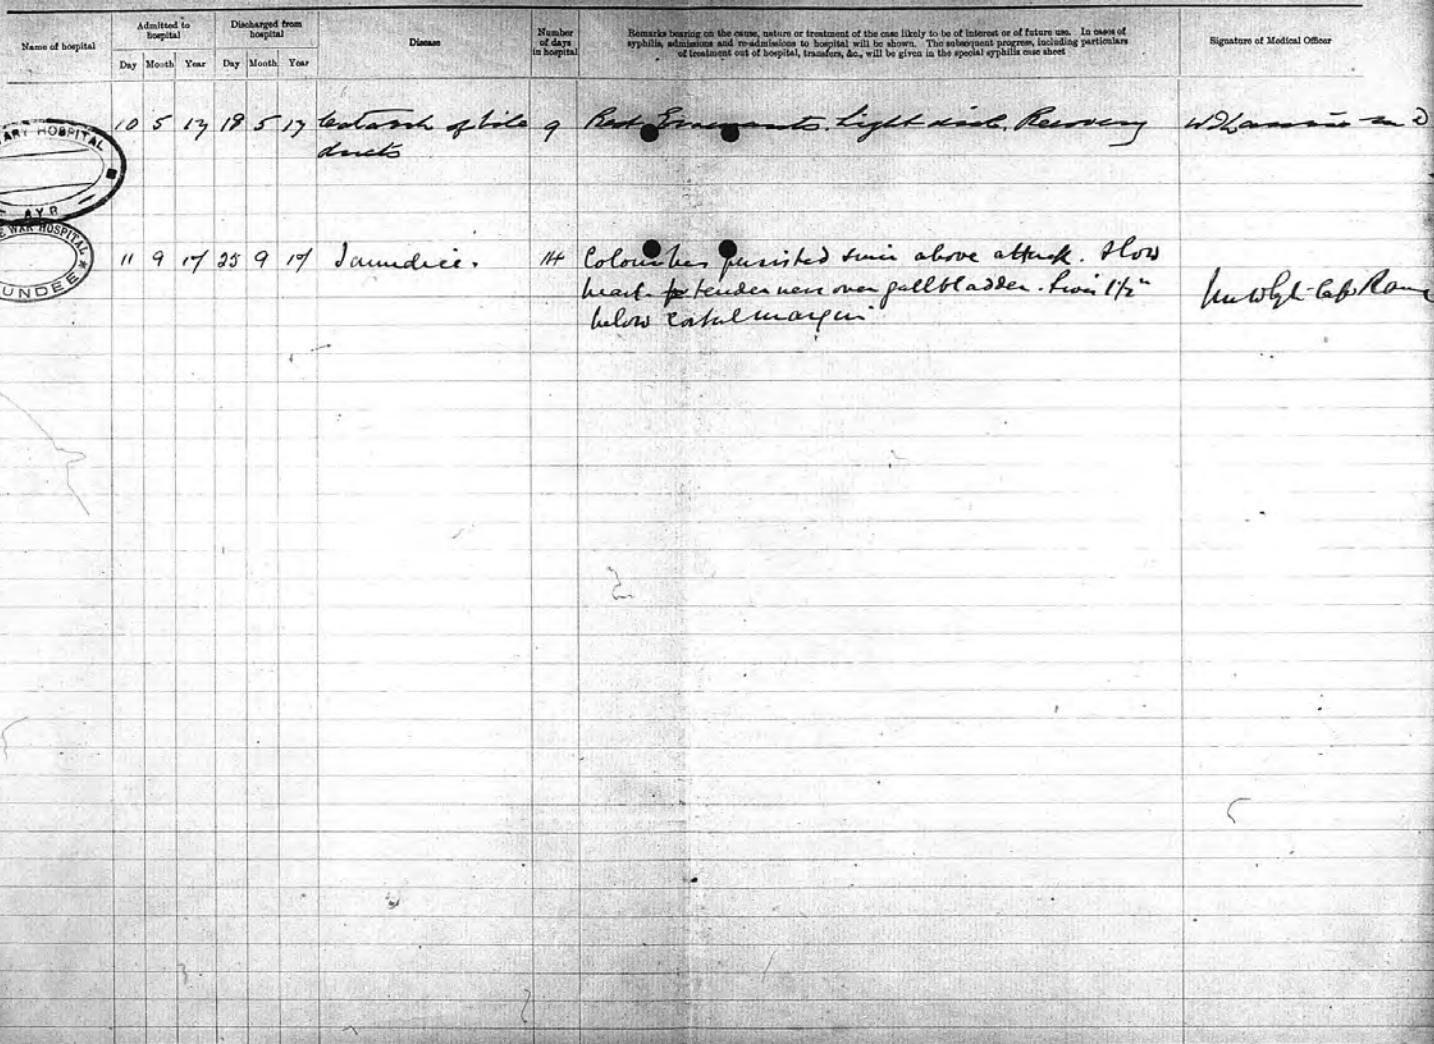 Name of hospital
Admitted to hospital
Discharged from hospital
Disease
Number of days in hospital
Remarks bearing on the cause, nature or treatment of the case likely to be of interest or of future use. In cases of
syphilis, admissions and re-admissions to hospital will be shown. The subsequent progress, including particulars
of treatment out of hospital, transfers, &c., will be given in the special syphilis case sheet
Signature of Medical Officer
Day Month Year Day Month Year
ARY HOSPITAL
AYR
10 5 17 18 5 17 Catarrh of bile 9 Rest Light diet. Recovery
ducts
E WAR HOSPITAL
UNDEE
11 9 17 25 9 17 Jaundice. 14 Colour has persisted since above attack. Slow
heart tenderness over gallbladder. Liver 1½"
below costal margin